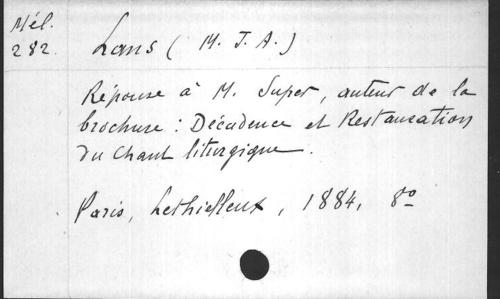 Mél.
282.
Lans (M. J. A.)
Réponse à M. Super, auteur de la
brochure : Décadence et Restauration
du Chant liturgique.
Paris, Lethielleux, 1884, 8º